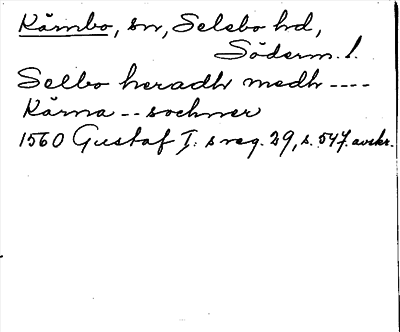 Kärnbo, sn, Selebo hd,
Söderm. l.
Selbo heradh medh ----
Kärna -- sochner
1560 Gustaf I:s reg. 29, s. 547. avskr.